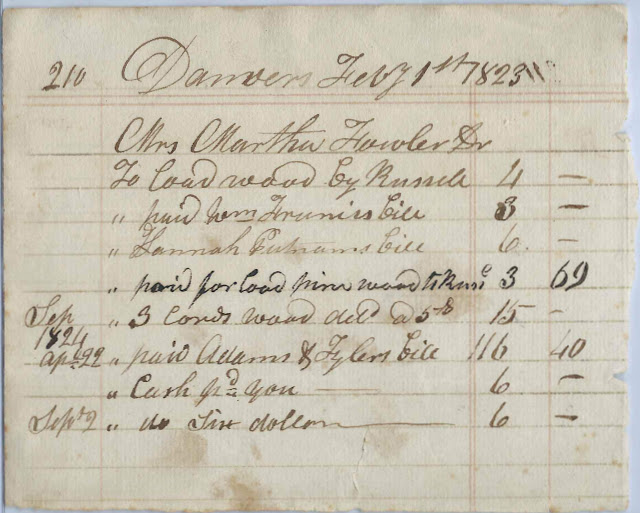 210 Danvers Feby 1st 1823
Mrs Martha Fowler Dr
To load wood by Russell 4 —
" paid Wm Francis bill 3 —
" Hannah Putnams bill 6 —
" paid for load pine wood to Russl 3 69
Sep " 3 Cords wood deld a 5$ 15 —
1824
apl 22 " paid Adams & Tylers bill 116 40
" Cash pd you — 6 —
Sept 2 " do Six dollars — 6 —